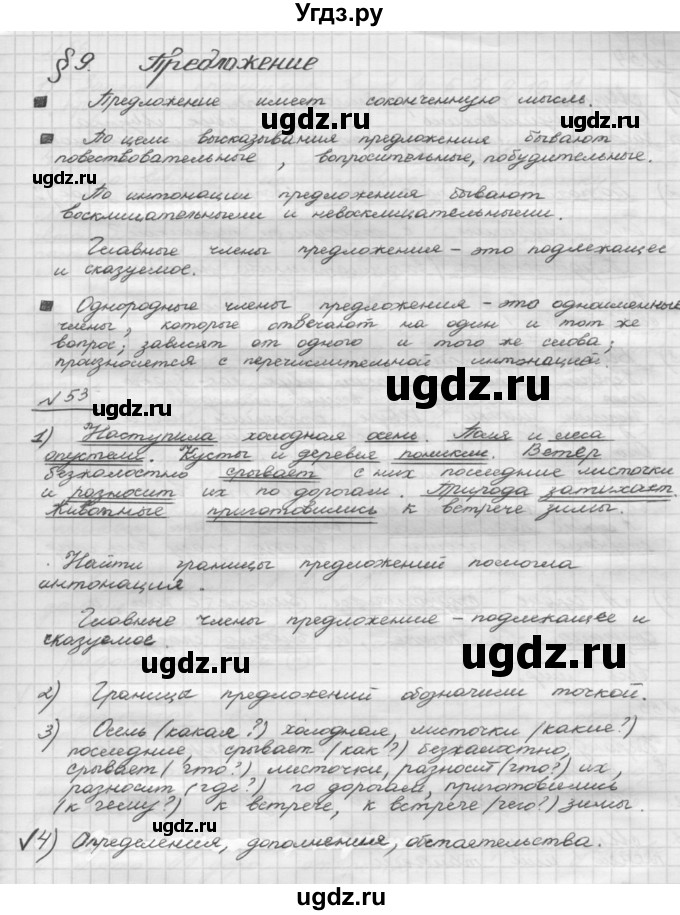 Угдз.ру
§ 9. Предложение
Предложение имеет соконченную мысль.
ugdz.ru ugdz.ru
По цели высказывания предложения бывают
повествовательные, вопросительные, побудительные.
ugdz.ru
По интонации предложения бывают
восклицательными и невосклицательными.
ugdz.ru
Главные члены предложения - это подлежащее
и сказуемое.
Однородные члены предложения - это одноименные
члены, которые отвечают на один и тот же
вопрос; зависят от одного и того же слова;
произносятся с перечислительной интонацией.
ugdz.ru
№ 53
1) Наступила холодная осень. Поля и леса
опустели. Кусты и деревья поникли. Ветер
безжалостно срывает с них последние листочки
и разносит их по дорогам. Природа затихает.
Животные приготовились к встрече зимы.
ugdz.ru
Найти границы предложений помогла
интонация.
Главные члены предложения - подлежащее и
сказуемое.
ugdz.ru ugdz.ru
2) Граница предложений обозначили точкой.
3) Осень (какая?) холодная, листочки (какие?)
последние, срывает (как?) безжалостно,
срывает (что?) листочки, разносит (что?) их,
разносит (где?) по дорогам, приготовились
(к чему?) к встрече, к встрече (чего?) зимы.
ugdz.ru ugdz.ru
4) Определения, дополнения, обстаятельства.
ugdz.ru